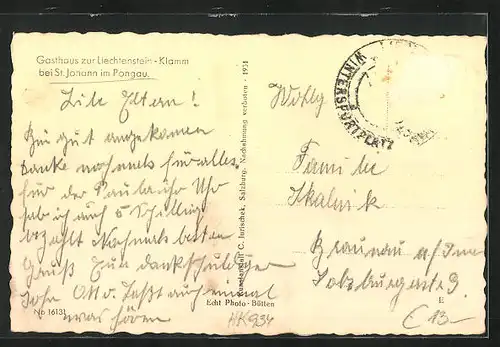 Gasthaus zur Liechtenstein-Klamm
bei St. Johann im Pongau.
Liebe Eltern!
Bin gut angekommen
Danke nochmals für alles
für der Paula ihr Uhr
hab ich auch 5 Schilling
bezahlt Nochmals besten
Gruß Euer dankschuldiger
Sohn Otto. Laßt auch einmal
was hören
No 16131
Kunstanstalt C. Jurischek, Salzburg. Nachahmung verboten - 1931
Echt Photo-Bütten
HK934
WINTERSPORTPLATZ
Familie
Skalnik
Braunau a/Inn
Salzburgerstr. 9.
E
€ 13.-